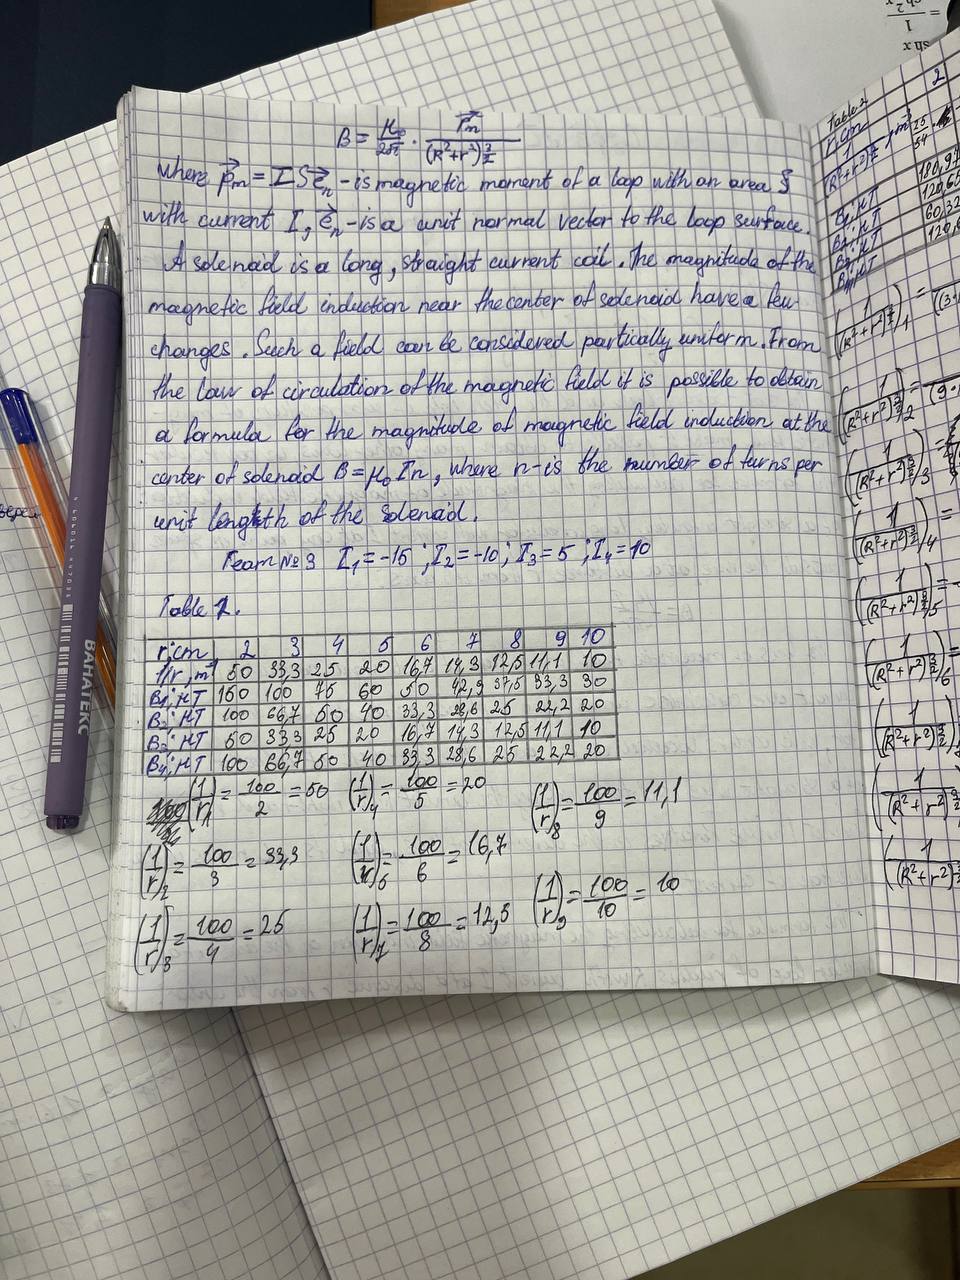 B = μ₀/2π · p⃗m/(R²+r²)^3/2
where p⃗m = I S e⃗n - is magnetic moment of a loop with an area S
with current I, e⃗n - is a unit normal vector to the loop surface.
A solenoid is a long, straight current coil. The magnitude of the
magnetic field induction near the center of solenoid have a few
changes. Such a field can be considered partially uniform. From
the law of circulation of the magnetic field it is possible to obtain
a formula for the magnitude of magnetic field induction at the
center of solenoid B = μ₀In, where n - is the number of turns per
unit length of the solenoid.
Team №3 I₁ = -15; I₂ = -10; I₃ = 5; I₄ = 10
Table 1.
r, cm 2 3 4 5 6 7 8 9 10
1/r, m⁻¹ 50 33,3 25 20 16,7 14,3 12,5 11,1 10
B₁, μT 150 100 75 60 50 42,9 37,5 33,3 30
B₂, μT 100 66,7 50 40 33,3 28,6 25 22,2 20
B₃, μT 50 33,3 25 20 16,7 14,3 12,5 11,1 10
B₄, μT 100 66,7 50 40 33,3 28,6 25 22,2 20
(1/r)₁ = 100/2 = 50 (1/r)₄ = 100/5 = 20 (1/r)₈ = 100/9 = 11,1
(1/r)₂ = 100/3 = 33,3 (1/r)₆ = 100/6 = 16,7 (1/r)₉ = 100/10 = 10
(1/r)₃ = 100/4 = 25 (1/r)₇ = 100/8 = 12,5
Table 2
r, cm 2
1/(R²+r²)^3/2, m⁻³
B₁, μT 180,97
B₂, μT 120,65
B₃, μT 60,32
B₄, μT 120,6
(1/(R²+r²)^3/2)₁ =
(1/(R²+r²)^3/2)₂ =
(1/(R²+r²)^3/2)₃ =
(1/(R²+r²)^3/2)₄ =
(1/(R²+r²)^3/2)₅ =
(1/(R²+r²)^3/2)₆ =
(1/(R²+r²)^3/2)
(1/(R²+r²)^3/2
(1/(R²+r²)^3/2
BAHATEKC
sh x
1/ch²x